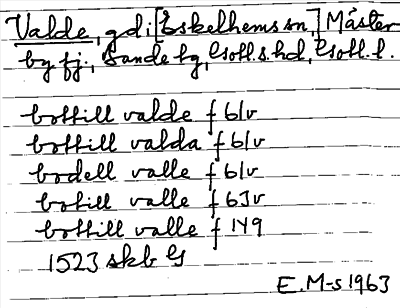 Valde, gd i [Eskelhems sn,] Mäster
by fj., Sande tg, Gotl.s.hd, Gotl. l.
bottill valde f 61v
bottill valda f 61v
bodell valle f 61v
botill valle f 63v
bottill valle f 149
1523 skb G
E.M-s 1963